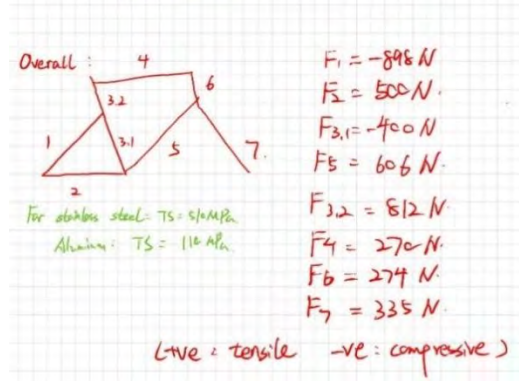 Overall :
4
6
3.2
1
3.1
5
7.
2
For stainless steel: TS = 510MPa
TS = 110 MPa
F₁ = -898 N
F₂ = 500 N.
F₃.₁ = -400 N
F₅ = 606 N
F₃.₂ = 812 N.
F₄ = 270 N.
F₆ = 274 N.
F₇ = 335 N.
(+ve : tensile -ve : compressive)